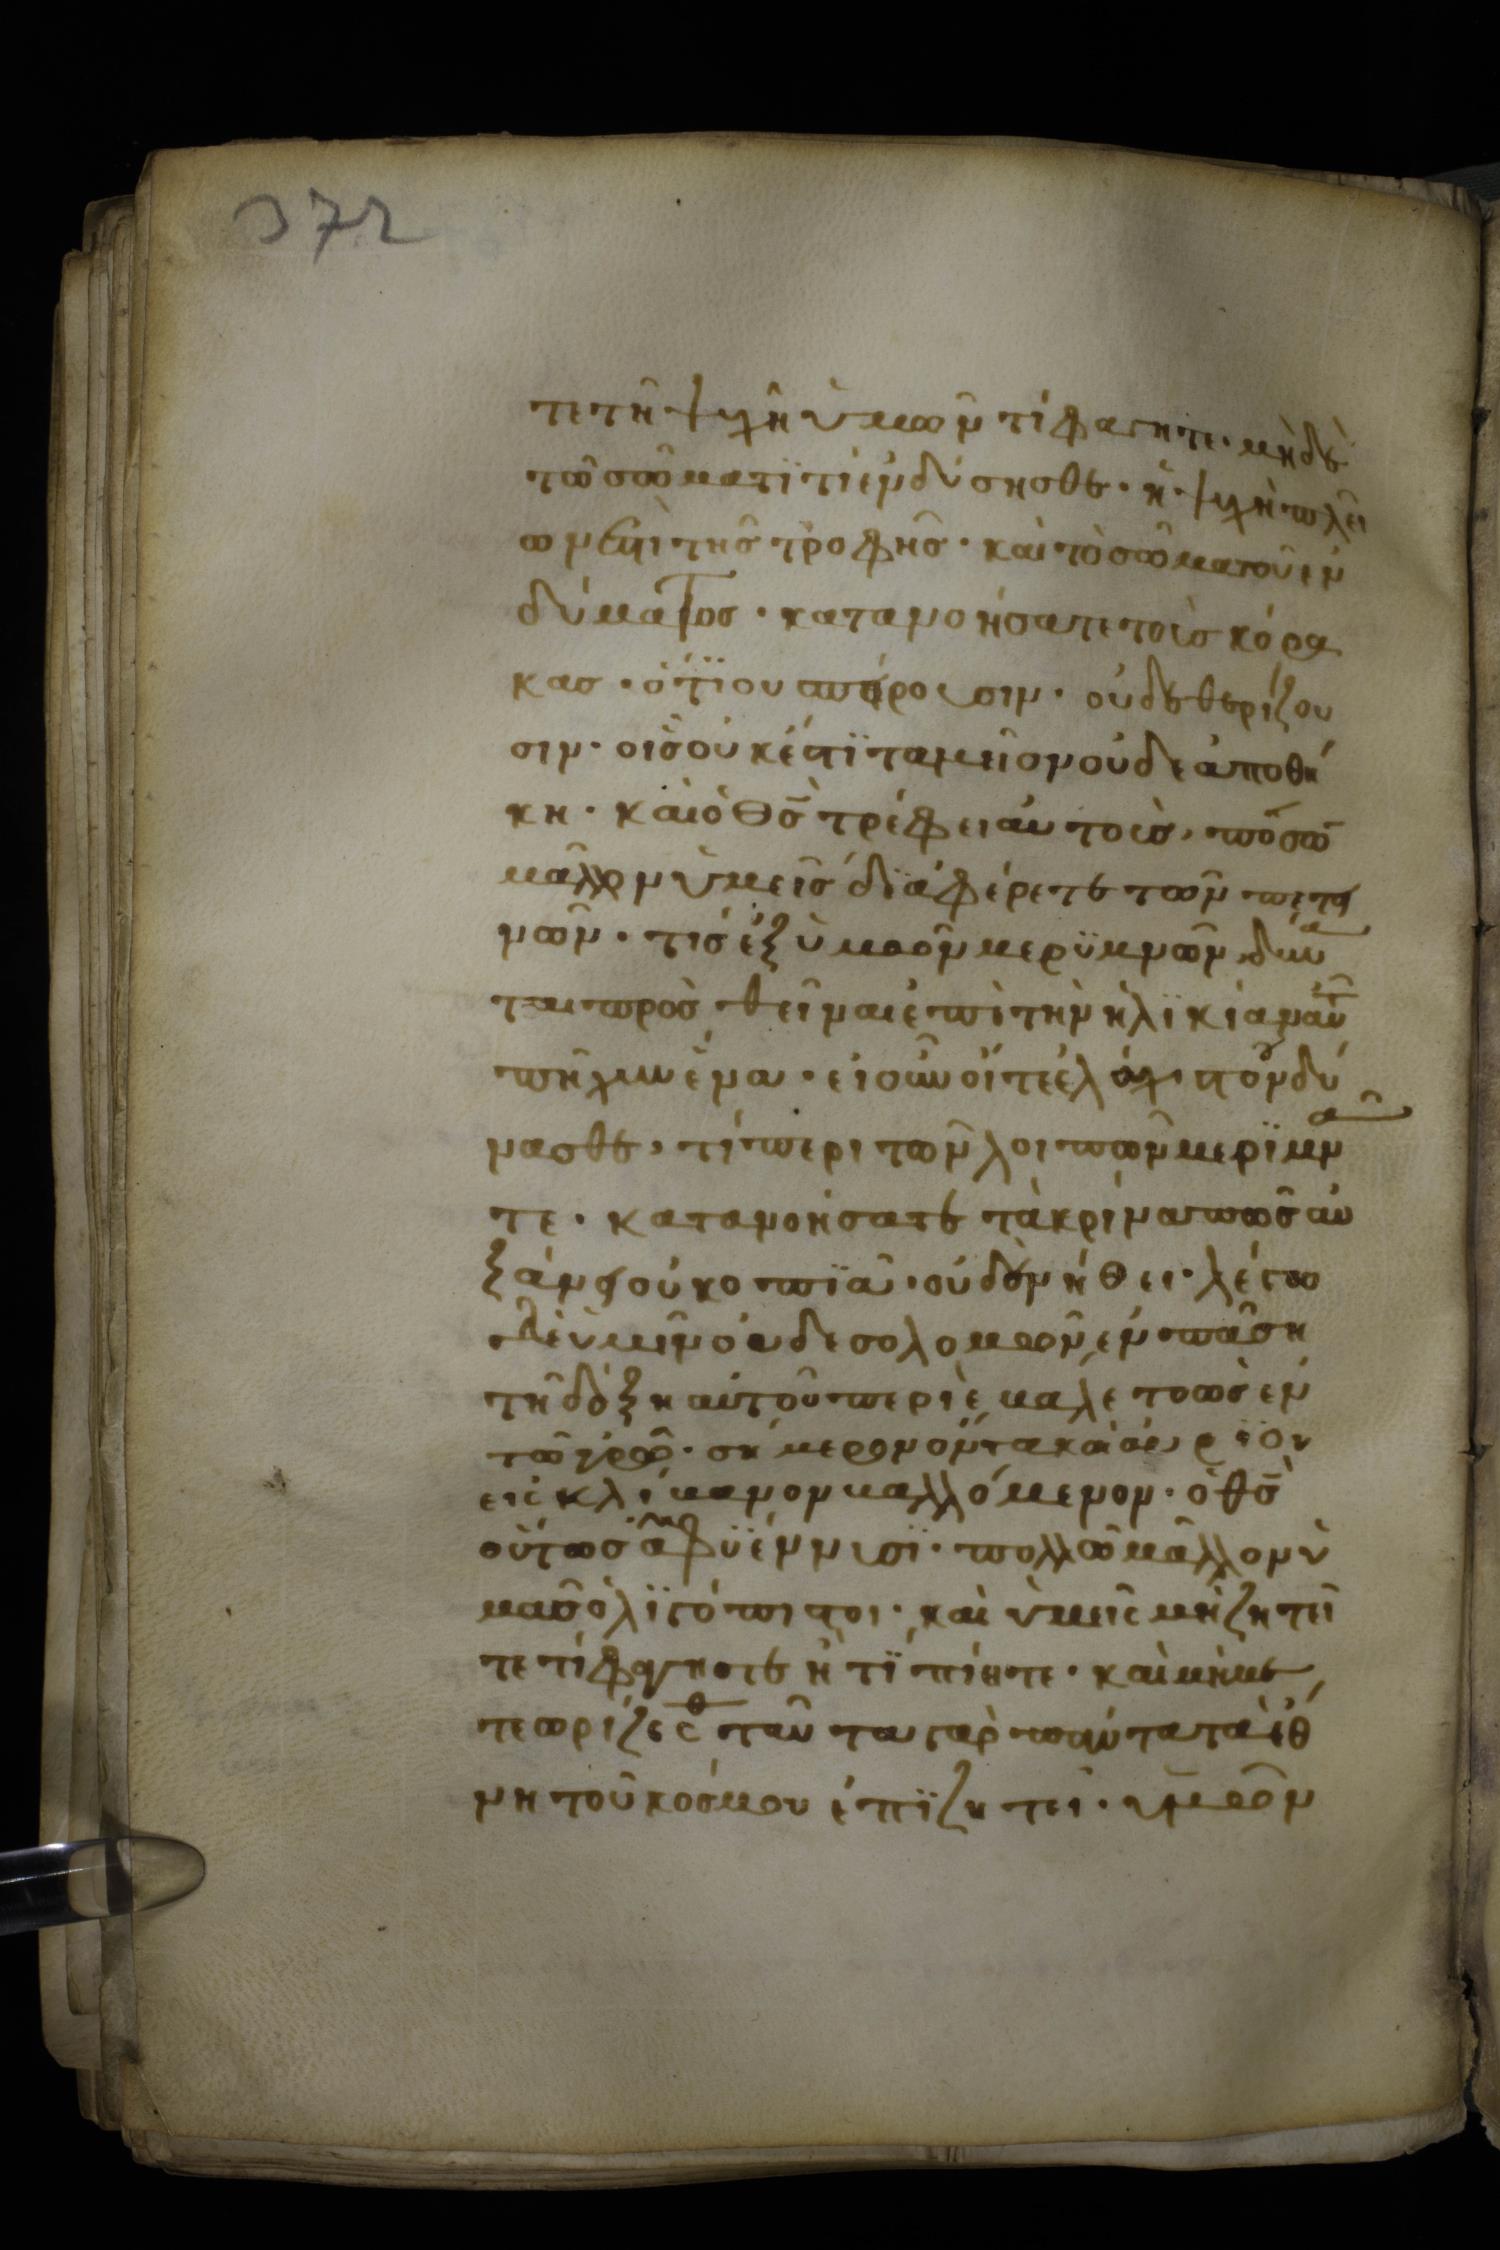 372
τε τῆ ψχῆ ὑμῶν τί φαγητε· μὴδὲ
τῶ σῶματϊ τὶ ἐνδύσησθε· ἡ ψχὴ πλεῖ
ων ἐστὶ τῆς τροφῆς· καὶ τὸ σῶμα τοῦ ἐν
δύματος· κατανοήσατε τοὺς κόρα
κας· ὅτϊ ου σπέρουσιν· οὐδε θερίζου
σιν· οἷς οὐκ έστϊ ταμεῖον οὐδε ἀποθή
κη· καὶ ὁ θς τρέφει αὐτοὺς, πόσω
μᾶλλον ὑμεῖς διαφέρετε τῶν πετα
νῶν· τίς ἐξ ὑμῶν μερϊμνῶν δύνα
ται προσθεῖναι ἐπὶ τὴν ἡλϊκίαν αὐτ
πῆχυν ἕνα· εἰ οὖν οὔτε ἐλάχιστον δύ
νασθε, τί περι τῶν λοιπῶν μερϊμνᾶ
τε· κατανοήσατε τὰ κρίνα πῶς αυ
ξάνει οὐ κοπϊᾶ· οὐδὲ νήθει· λέγω
δὲ ὑμῖν οὐδε σολομῶν ἐν πάση
τῆ δόξη αὐτοῦ περιεβαλέτο ὡς ἑν
τῶ ἀγρῶ· σήμερον ὄντα καὶ αύρϊον
εις κλίβανον βαλλόμενον· ὁ θς
οὕτως ἀμφϊέννυσϊ· πολλῶ μᾶλλον ὑ
μᾶς ὀλϊγόπιστοι· καὶ ὑμεῖς μὴ ζητεῖ
τε τί φαγητε ἢ τί πίητε· και μὴ με
τεωρίζεσθ ταῦτα γαρ πάντα τὰ ἔθ
νη τοῦ κόσμου ἐπϊζητεῖ· ὑμῶν